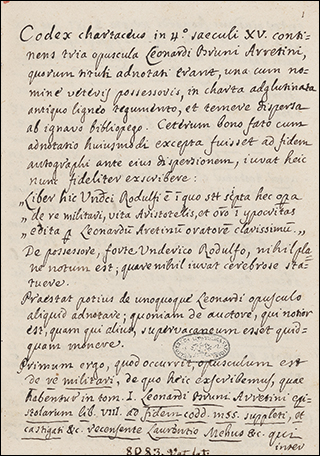 1
Codex chartaceus in 4.° saeculi XV. conti-
nens tria opuscula Leonardi Bruni Arretini,
quorum tituli adnotati erant, una cum no-
mine veteris possessoris, in charta adglutinata
antiquo ligneo tegumento, et temere dispersa
ab ignavo bibliopego. Ceterum bono fato cum
adnotatio huiusmodi excepta fuisset ad fidem
autographi ante eius dispersionem, iuvat heic
nunc fideliter exscribere:
„ Liber hic Undici Rodulfi ē ī quo stt scīpta hec opa
„ de re militari, vita Aristotelis, et orō ī ypocritas
„ edita p Leonardū Aretinū oratorē clarissimū „
De possessore, forte Underico Rodulfo, nihil pla-
ne notum est, quare nihil iuvat cerebrose sta-
tuere.
Praestat potius de unoquoque Leonardi opusculo
aliquid adnotare; quoniam de auctore, qui notior
est, quam qui alius, supervacaneum esset quid-
quam monere.
Primum ergo, quod occurrit, opusculum est
de re militari, de quo heic exscribemus, quae
habentur in tom. I. Leonardi Bruni Arretini epi-
stolarum lib. VIII. ad fidem codd. mss. suppleti, et
castigati &c. recensente Laurentio Mehus &c. qui
inter
8083. Vat. lat.